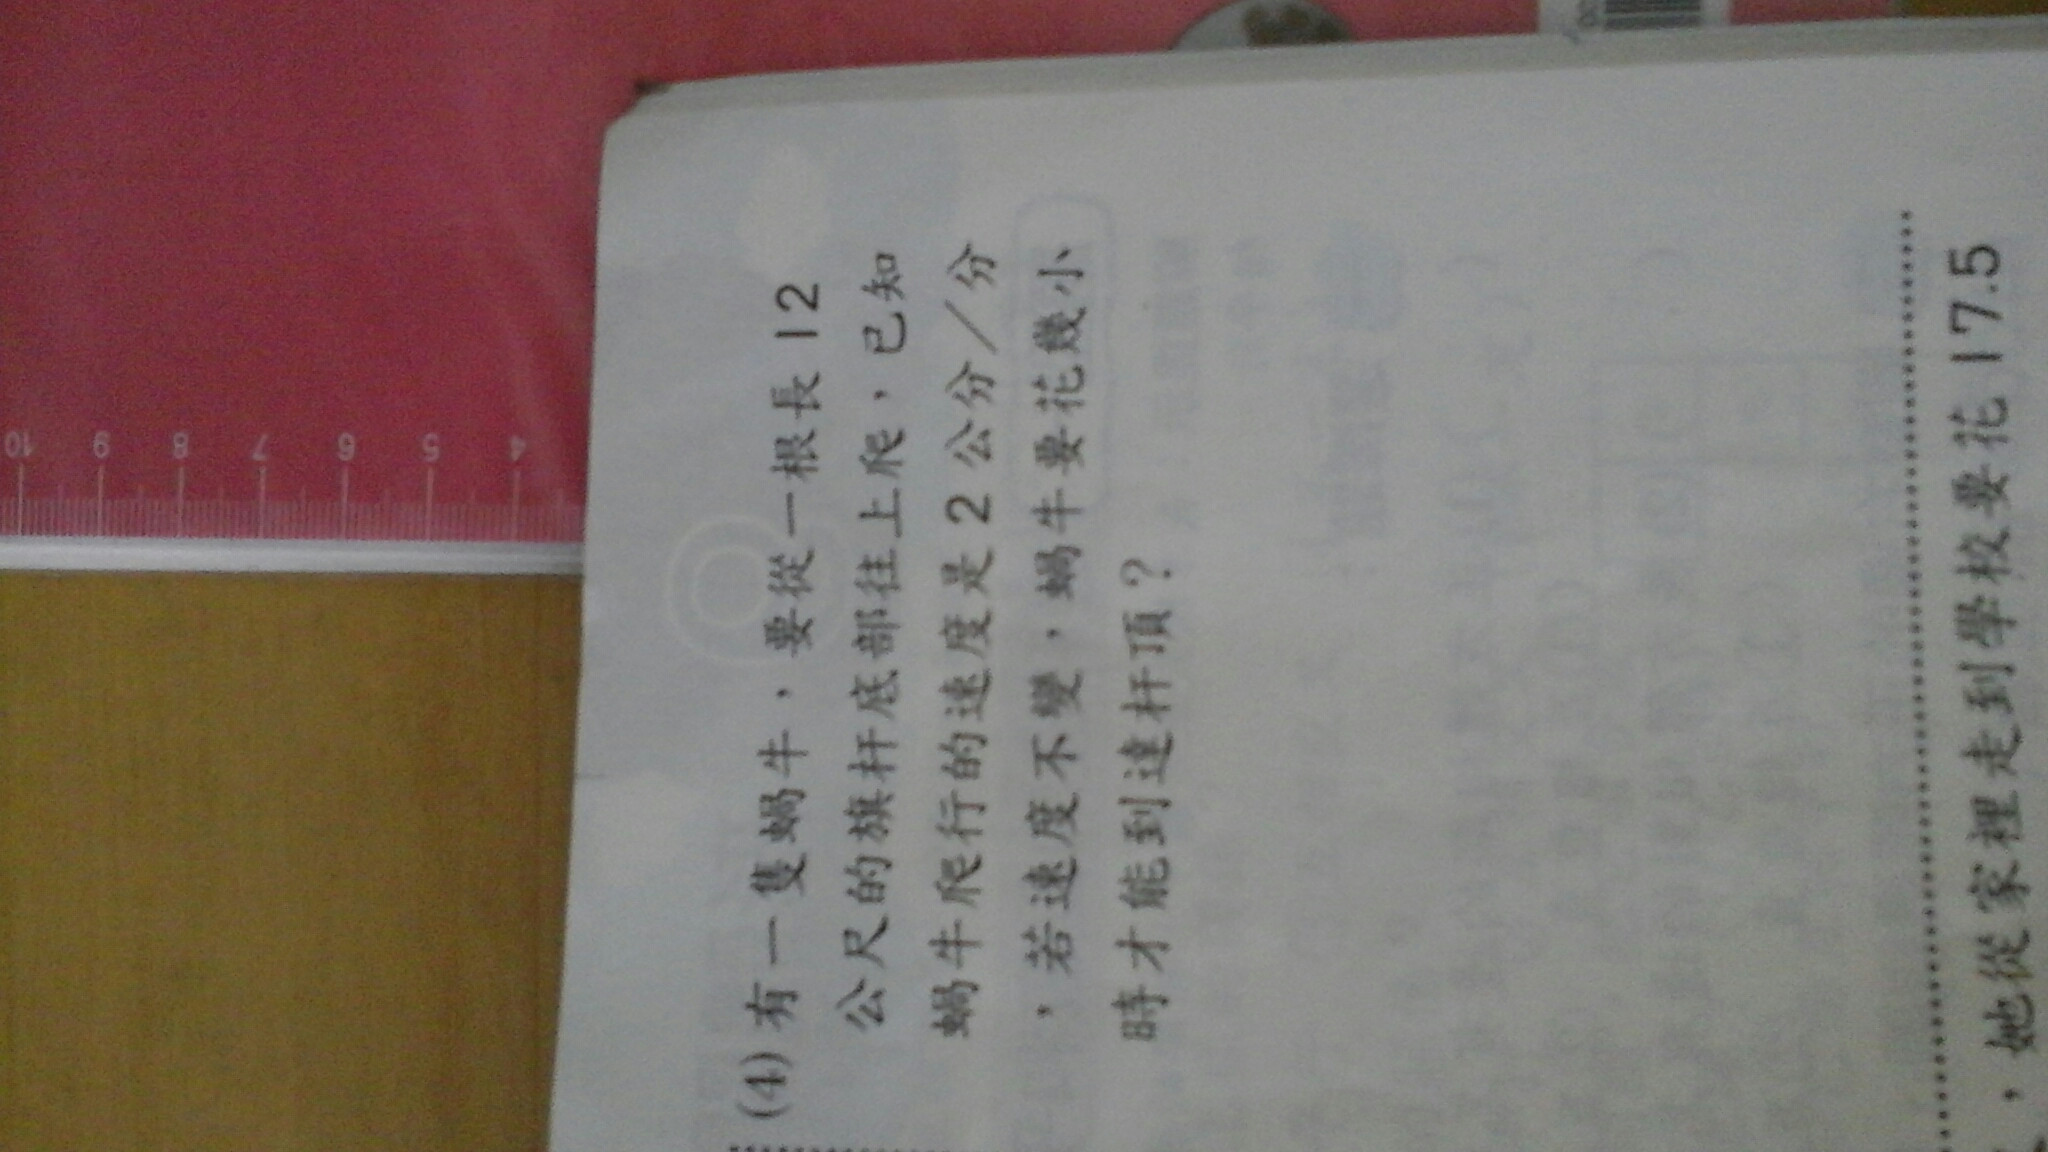 (4) 有一隻蝸牛，要從一根長12
公尺的旗杆底部往上爬，已知
蝸牛爬行的速度是2公分／分
，若速度不變，蝸牛要花幾小
時才能到達杆頂？
，她從家裡走到學校要花17.5
10 9 8 7 6 5 4